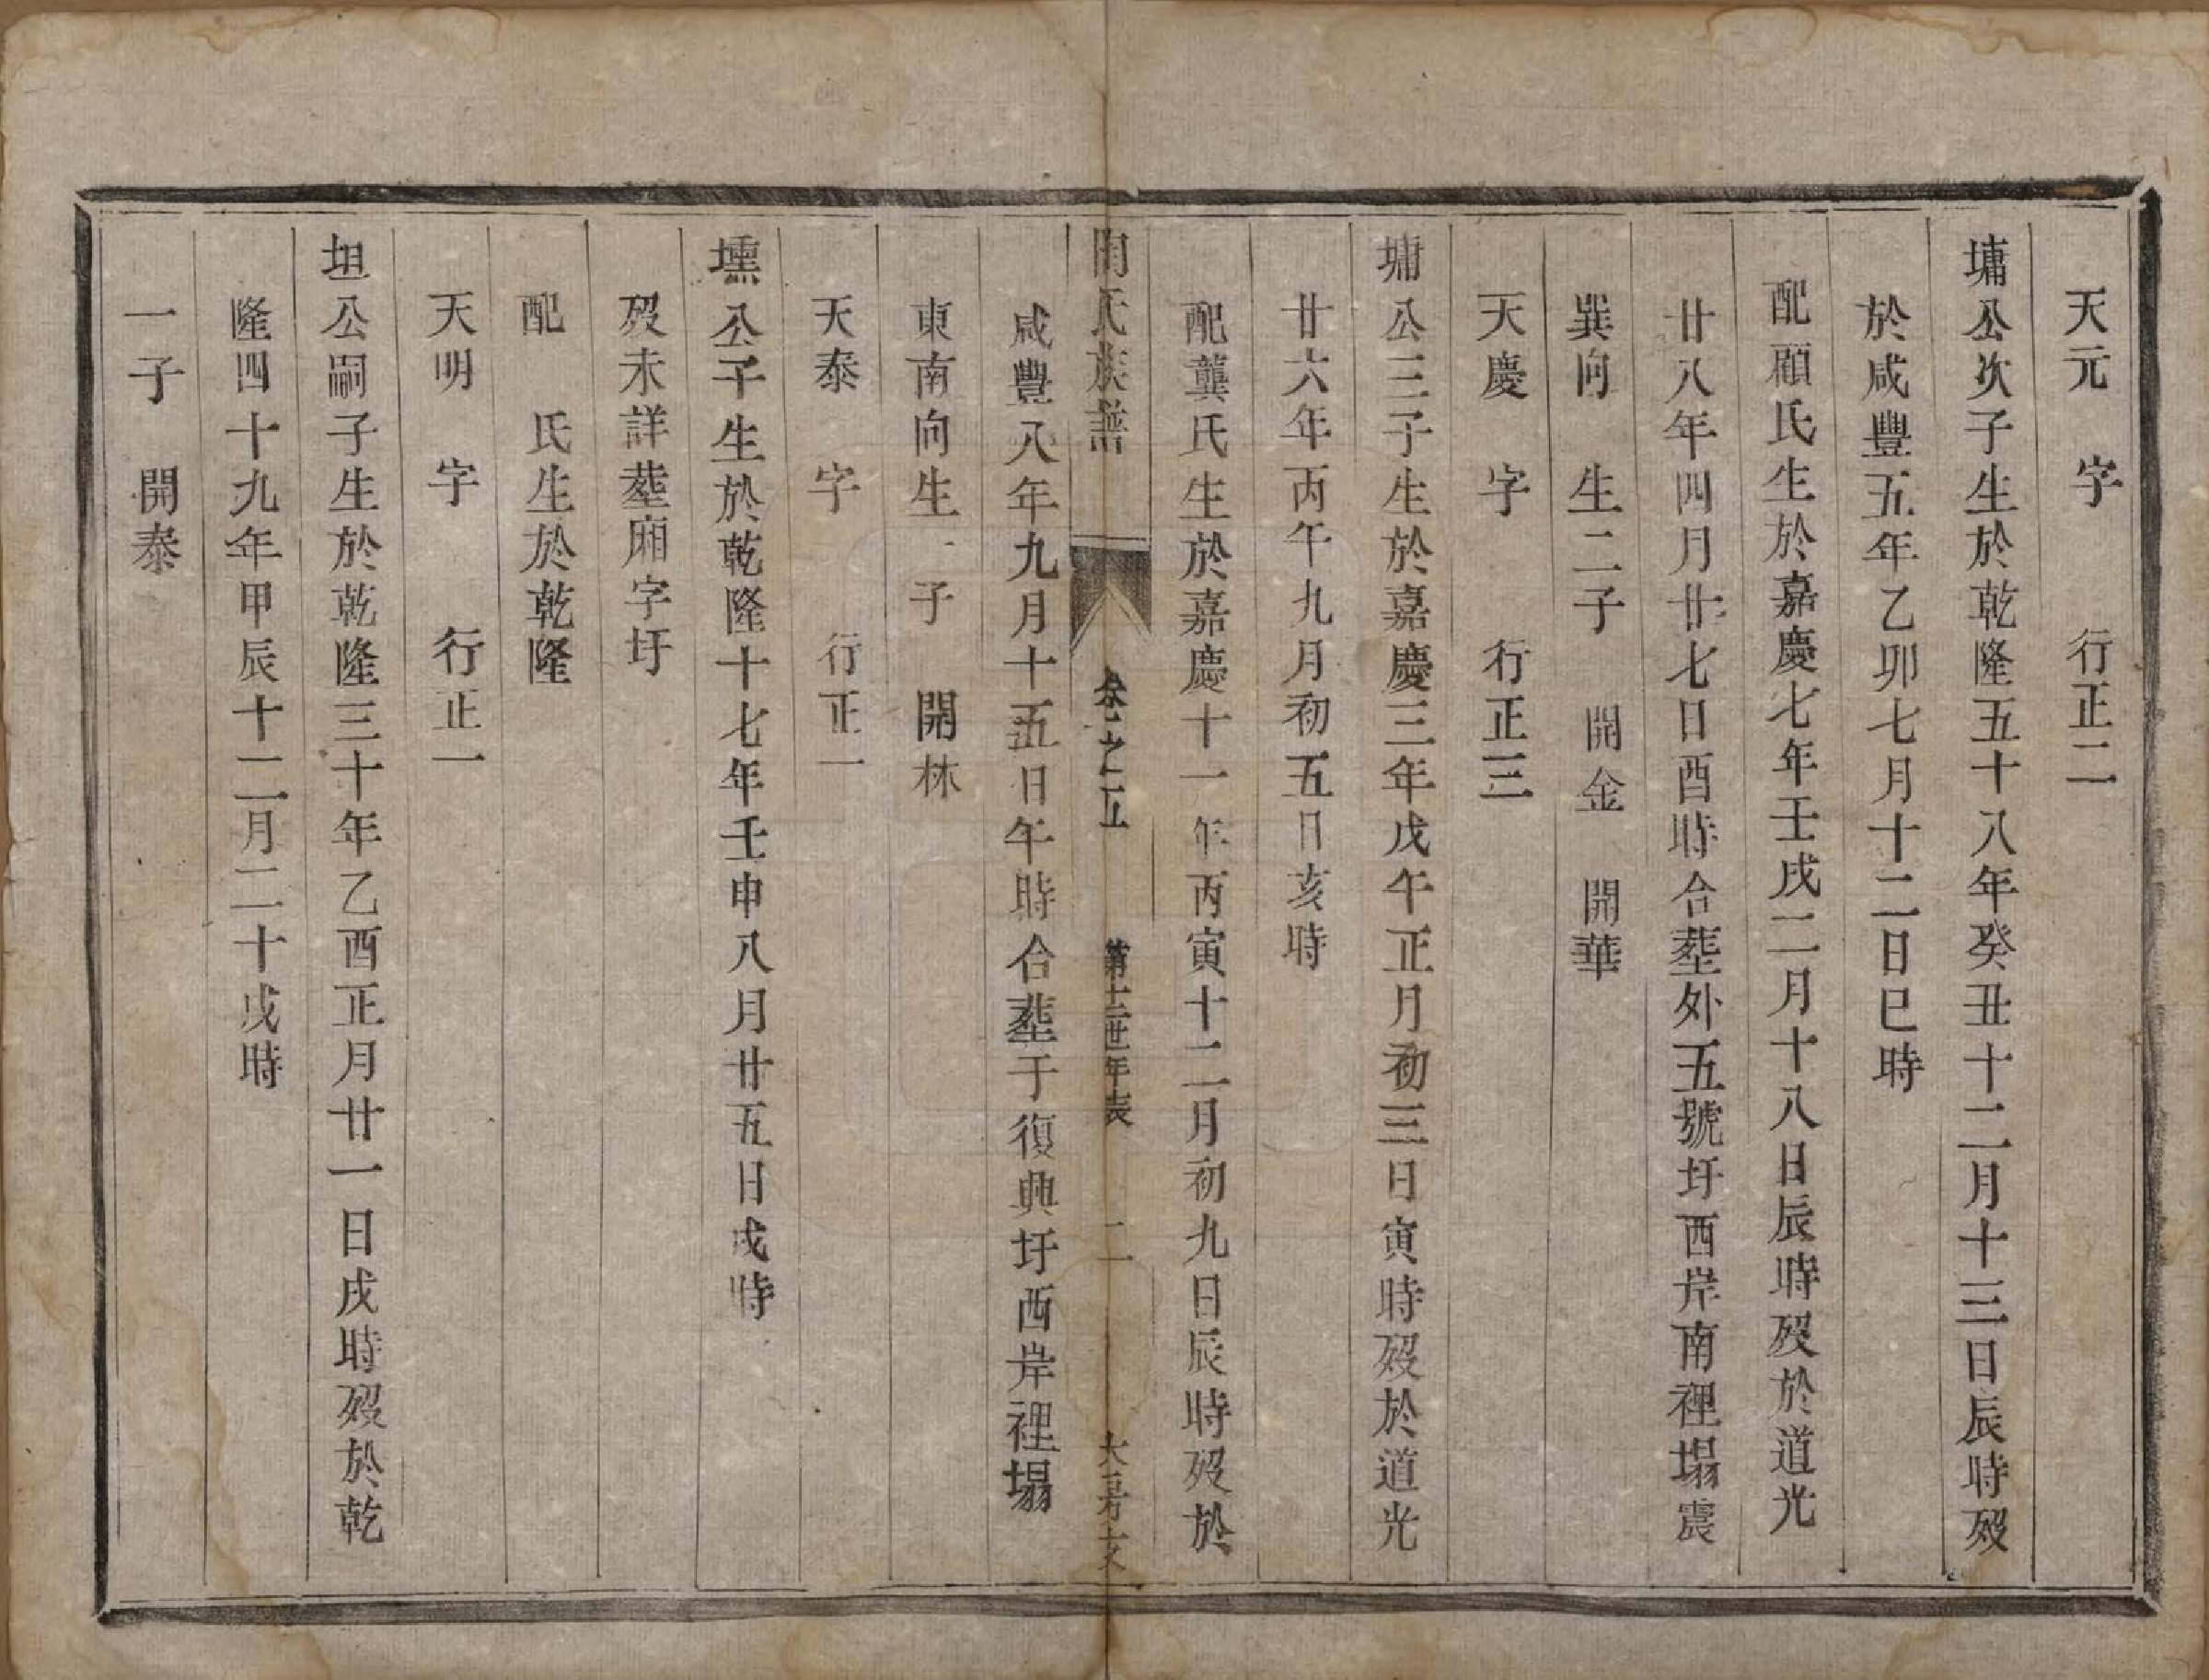 天元　字　　行正二
墉公次子生於乾隆五十八年癸丑十二月十三日辰時歿
於咸豐五年乙卯七月十二日巳時
配顧氏生於嘉慶七年壬戌二月十八日辰時歿於道光
廿八年四月廿七日酉時合塟外五號圩西岸南裡塌震
巽向　生二子　開金　開華
天慶　字　　行正三
墉公三子生於嘉慶三年戊午正月初三日寅時歿於道光
廿六年丙午九月初五日亥時
配龔氏生於嘉慶十一年丙寅十二月初九日辰時歿於
咸豐八年九月十五日午時合塟于復興圩西岸裡塌
氏族譜　卷之五　第十三世年表　二　大房之文
東南向生一子　開林
天泰　字　　行正一
壎公子生於乾隆十七年壬申八月廿五日戌時
歿未詳塟廂字圩
配　氏生於乾隆
天明　字　　行正一
坦公嗣子生於乾隆三十年乙酉正月廿一日戌時歿於乾
隆四十九年甲辰十二月二十戌時
一子　開泰